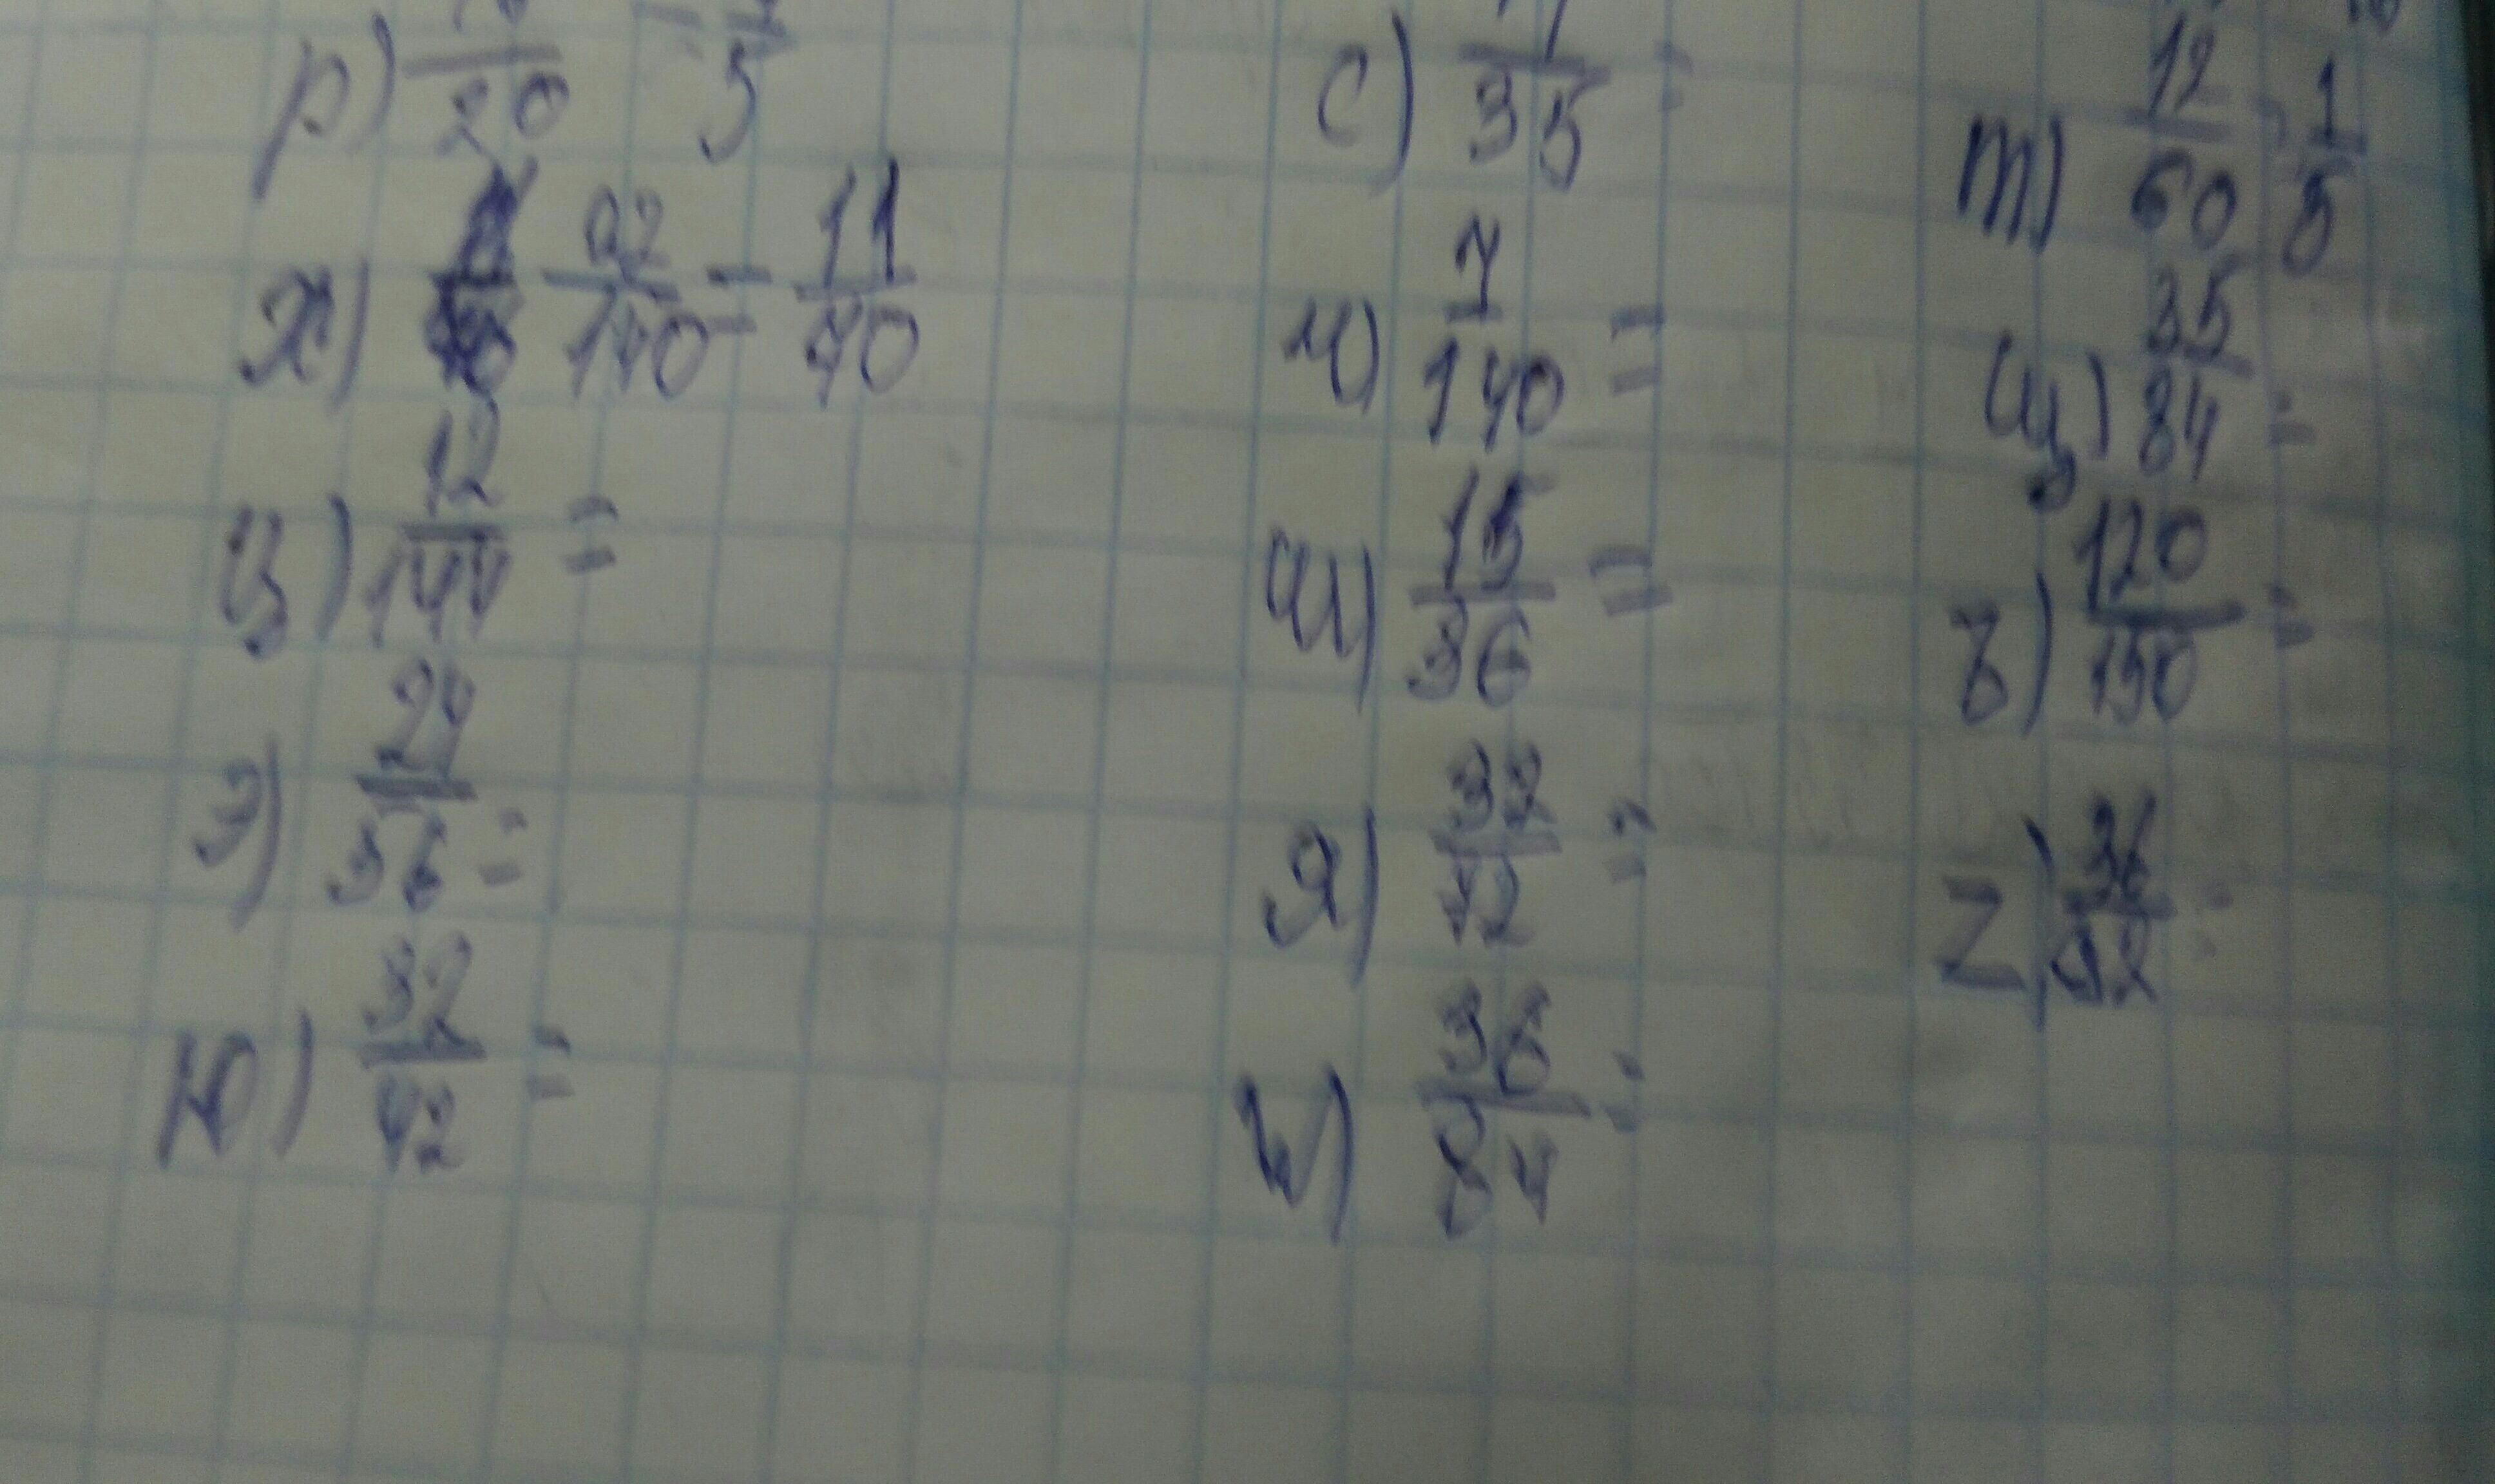 р) /20 = /5 с) 7/35 = т) 12/60 = 1/5
х) 22/140 = 11/70 ч) 7/140 = щ) 35/84 =
ц) 12/144 = ш) 15/36 = ъ) 120/150 =
э) 24/36 = я) 32/42 = z) 36/42 =
ю) 32/42 = ы) 36/84 =